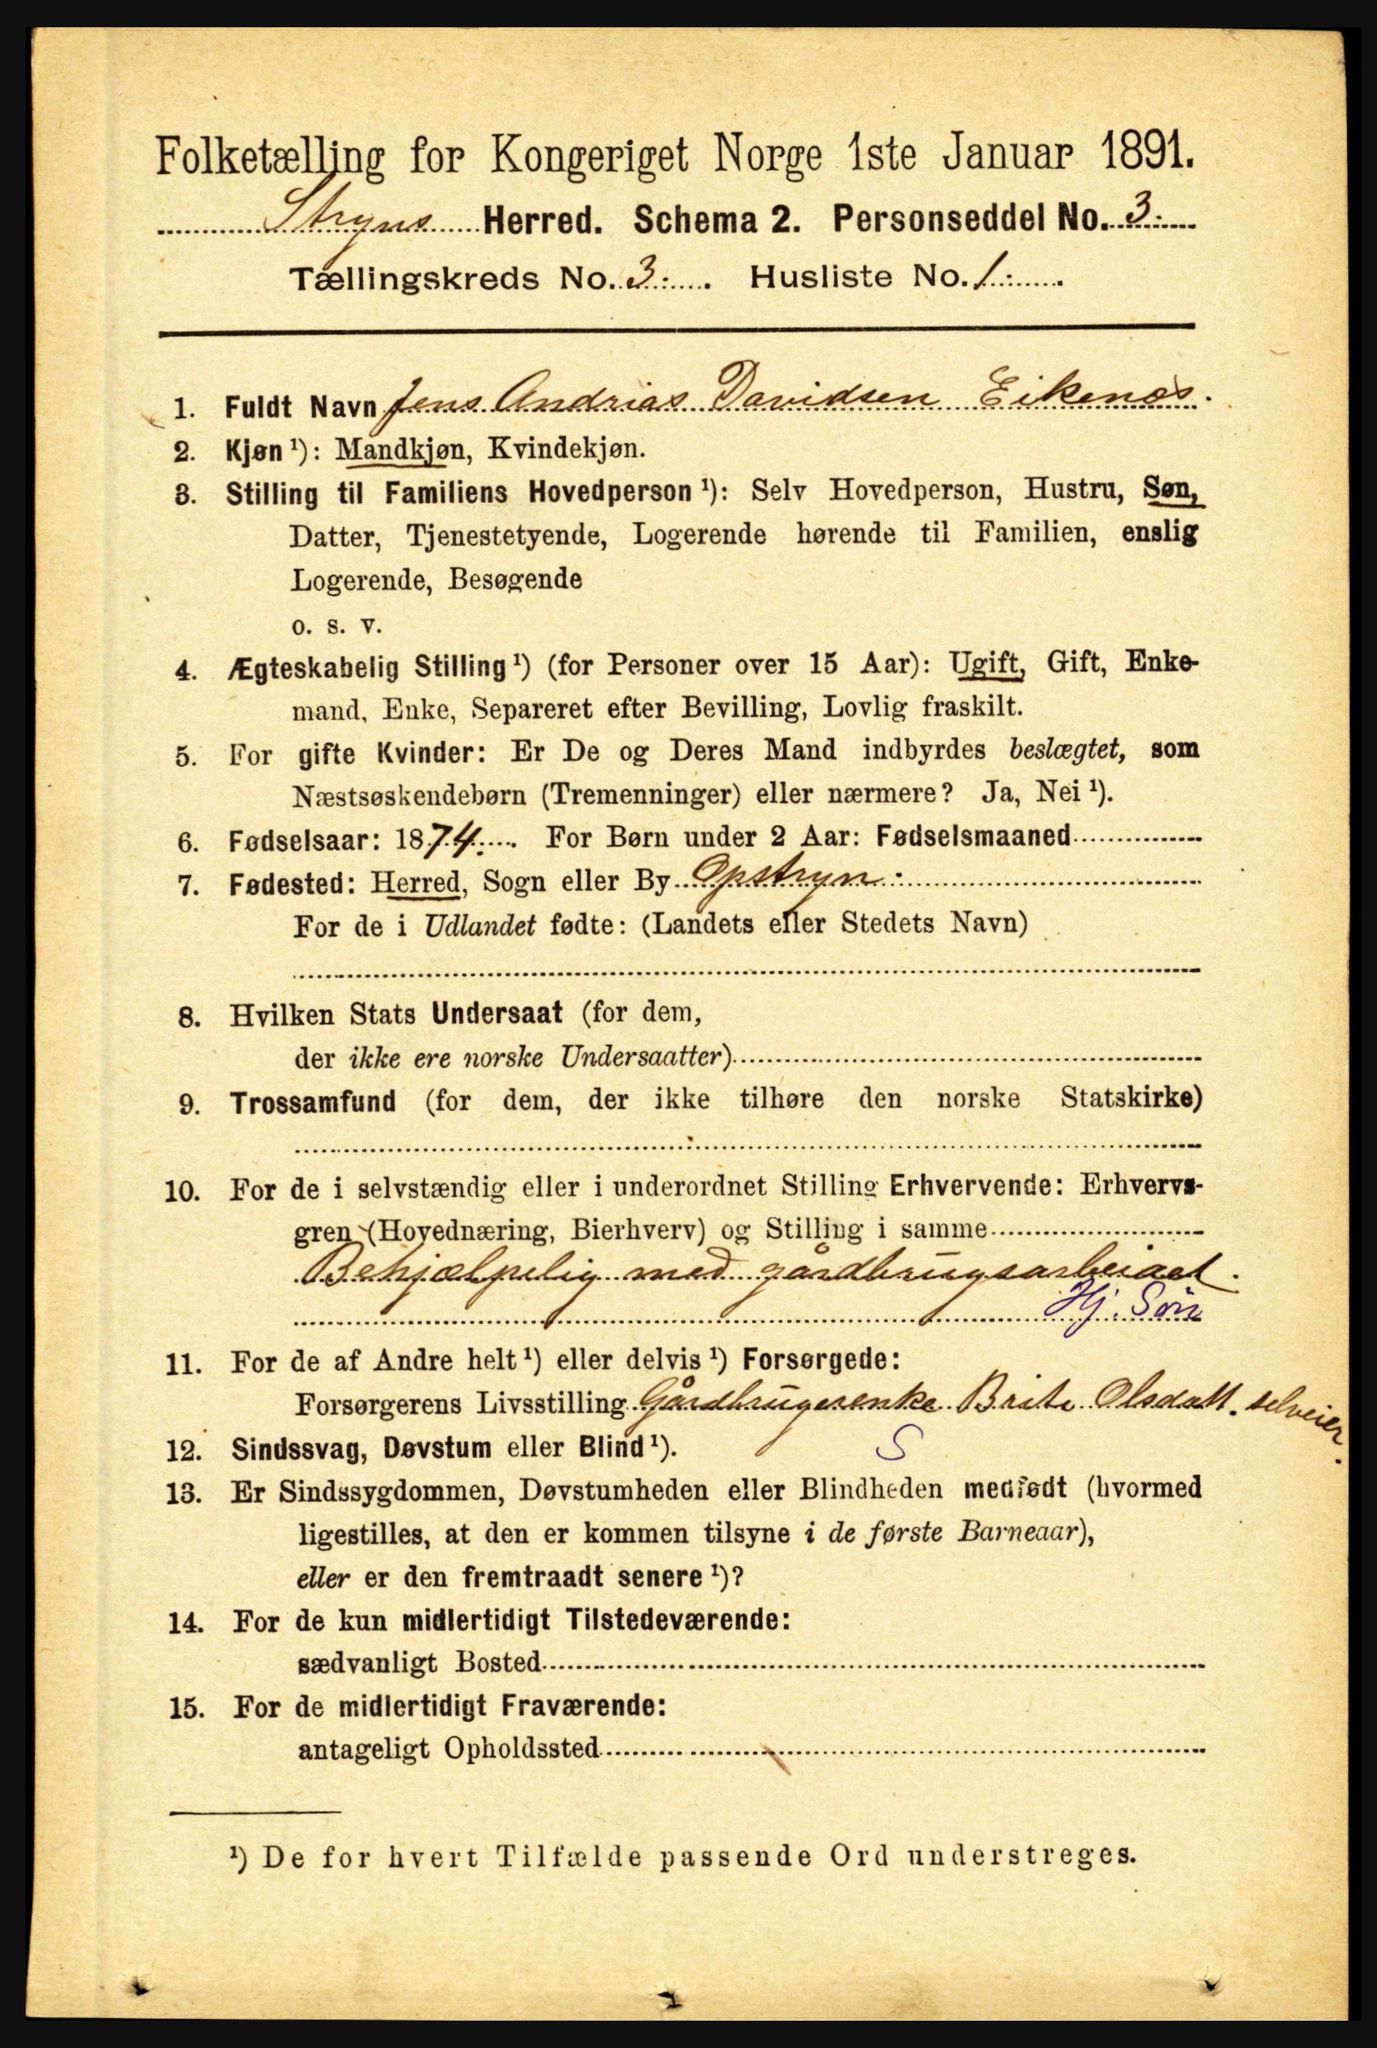 Folketælling for Kongeriget Norge 1ste Januar 1891.
Stryns Herred. Schema 2. Personseddel No. 3.
Tællingskreds No. 3. Husliste No. 1.
1. Fuldt Navn Jens Andrias Davidsen Eikenæs.
2. Kjøn ¹): Mandkjøn, Kvindekjøn.
3. Stilling til Familiens Hovedperson ¹): Selv Hovedperson, Hustru, Søn,
Datter, Tjenestetyende, Logerende hørende til Familien, enslig
Logerende, Besøgende
o. s. v.
4. Ægteskabelig Stilling ¹) (for Personer over 15 Aar): Ugift, Gift, Enke-
mand, Enke, Separeret efter Bevilling, Lovlig fraskilt.
5. For gifte Kvinder: Er De og Deres Mand indbyrdes beslægtet, som
Næstsøskendebørn (Tremenninger) eller nærmere? Ja, Nei ¹).
6. Fødselsaar: 1874. For Børn under 2 Aar: Fødselsmaaned
7. Fødested: Herred, Sogn eller By Opstryn.
For de i Udlandet fødte: (Landets eller Stedets Navn)
8. Hvilken Stats Undersaat (for dem,
der ikke ere norske Undersaatter)
9. Trossamfund (for dem, der ikke tilhøre den norske Statskirke)
10. For de i selvstændig eller i underordnet Stilling Erhvervende: Erhvervs-
gren (Hovednæring, Bierhverv) og Stilling i samme
Behjælpelig med gårdbrugsarbeidet.
Hj. Søn
11. For de af Andre helt ¹) eller delvis ¹) Forsørgede:
Forsørgerens Livsstilling Gårdbrugerenke Brite Olsdatt. selveier.
12. Sindssvag, Døvstum eller Blind ¹). S
13. Er Sindssygdommen, Døvstumheden eller Blindheden medfødt (hvormed
ligestilles, at den er kommen tilsyne i de første Barneaar),
eller er den fremtraadt senere ¹)?
14. For de kun midlertidigt Tilstedeværende:
sædvanligt Bosted
15. For de midlertidigt Fraværende:
antageligt Opholdssted
¹) De for hvert Tilfælde passende Ord understreges.